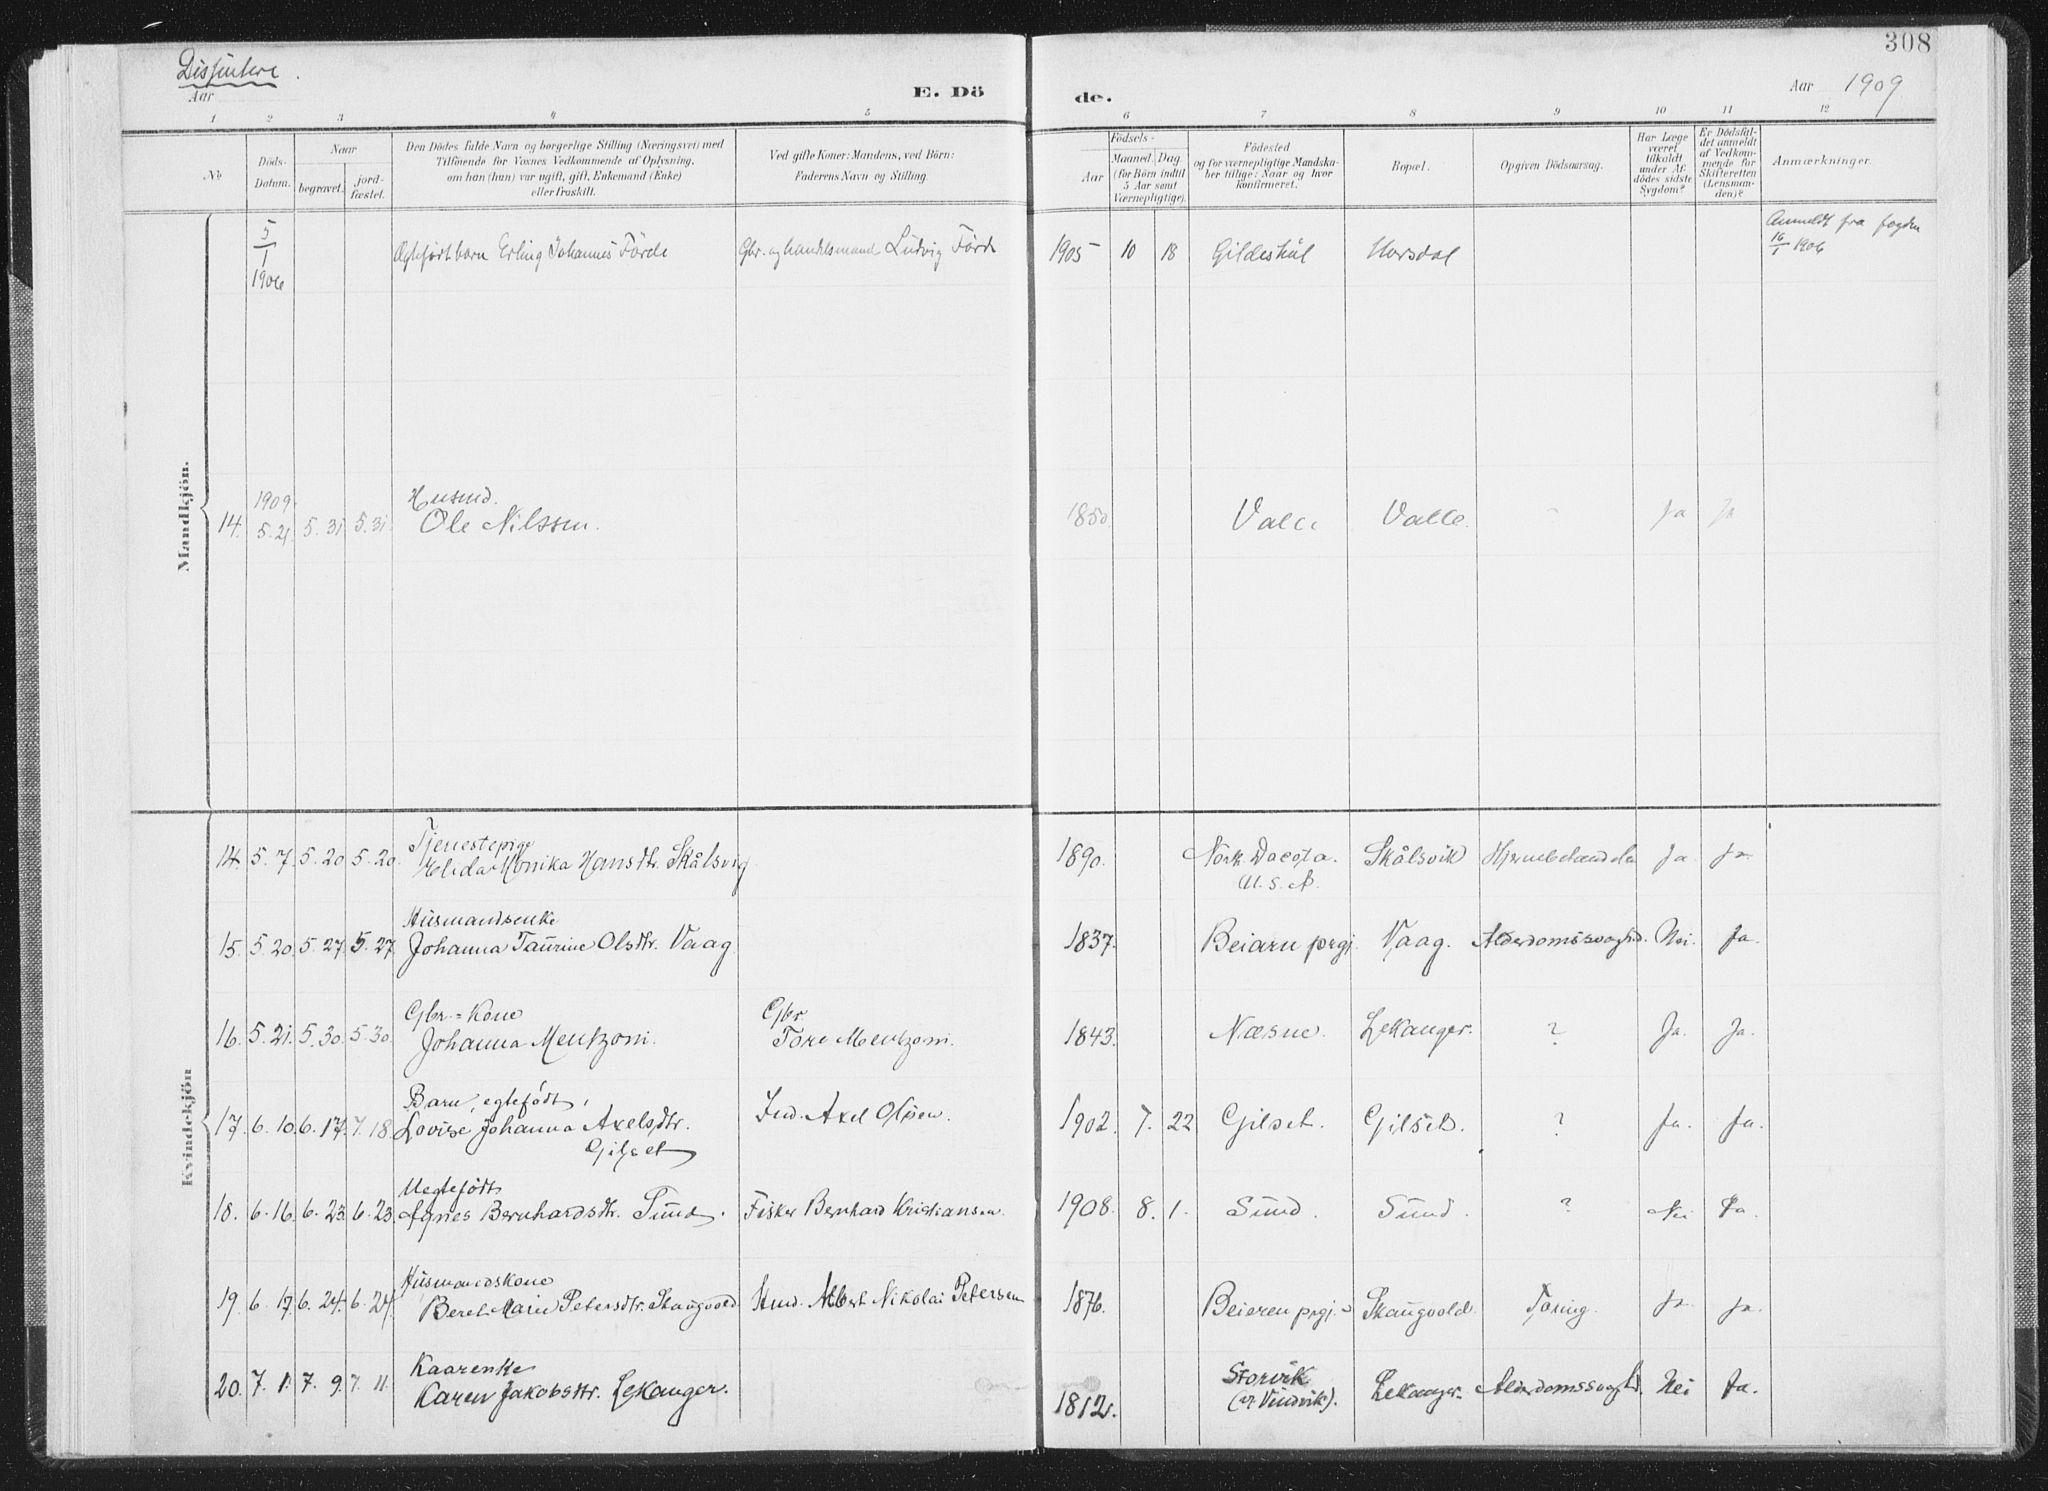 308
Dissentere.
Aar
E. Dö
de.
Aar 1909
1 2 3 4 5 6 7 8 9 10 11 12
No
Döds-
Datum.
Naar
begravet.
jord-
fæstet.
Den Dödes fulde Navn og borgerlige Stilling (Næringsvei) med
Tilföiende for Voxnes Vedkommende af Oplysning,
om han (hun) var ugift, gift, Enkemand (Enke)
eller fraskilt.
Ved gifte Koner: Mandens, ved Börn:
Faderens Navn og Stilling.
Födsels-
Aar
Maaned. Dag
(for Börn indtil
5 Aar samt
Værnepligtige).
Födested
og for værnepligtige Mandska-
ber tillige: Naar og hvor
konfirmeret.
Bopæl.
Opgiven Dödsaarsag.
Har Læge
været
tilkaldt
under Af-
dödes sidste
Sygdom?
Er Dödsfal-
det anmeldt
af Vedkom-
mende for
Skifteretten
(Lensman-
den)?
Anmærkninger.
Mandkjön.
5/1 1906 Ægtefört barn Erling Johannes Förde Gbr. og handelsmand Ludvig Förde 1905 10 18 Gildeskål Horsdal Anmeldt fra fogden
16/1 1906
1909. Husmd.
14. 5.21. 5.31. 5.31. Ole Nilssen. 1850. Valle Valle. Ja Ja
Kvindekjön
Tjenestepige
14. 5.7. 5.20. 5.20. Helida Monika Hansdtr. Skålsvig 1890. North Dacota. Skålsvik Ja. Ja.
U.S.A.
Husmandsenke
15. 5.20. 5.27. 5.27. Johanna Taurine Olsdtr. Vaag 1837. Beiarn prgj. Vaag. Alderdomssvaghd. Nei. Ja.
Gbr.-kone Gbr.
16. 5.21. 5.30. 5.30. Johanna Mentzoni. Tore Mentzoni. 1843. Næsne. Lekanger. ? Ja. Ja.
Barn, egtefödt,
17. 6.10. 6.17. 7.18. Lovise Johanna Axelsdtr. Ind. Axel Olsen. 1902. 7. 22 Gilset. Gilset. ? Ja. Ja.
Gilset
Uegtefödt
18. 6.16. 6.23. 6.23. Agnes Bernhardsdtr. Sund. Fisker Bernhard Kristiansen. 1908. 8. 1. Sund. Sund. ? Nei Ja.
Husmandskone
19. 6.17. 6.24. 6.24. Beret Marie Petersdtr. Skaugvold Hmd. Albert Nikolai Petersen 1876. Beieren prgj. Skaugvold. Tæring. Ja. Ja.
Kaarenke Storvik
20. 7.1. 7.9. 7.11. Karen Jakobsdtr. Lekanger. 1812. (er Vindvik). Lekanger. Alderdomssvaghd. Nei Ja.